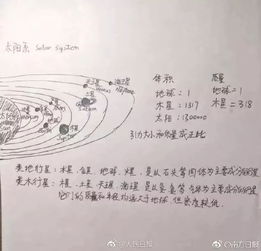 太阳系 Solar System
体积 质量
地球：1 地球：1
木星：1317 木星=318
太阳：1300000
引力大小和质量成正比
天王星
海王星
土星
木星
类地行星：水星、金星、地球、火星，是以石头等固体为主要成分的行星
类木行星：木星、土星、天王星、海王星，是以氢、氦等气体为主要成分的行星
它们的质量和半径均远大于地球，但密度较低。
@人民日报
@南方日报